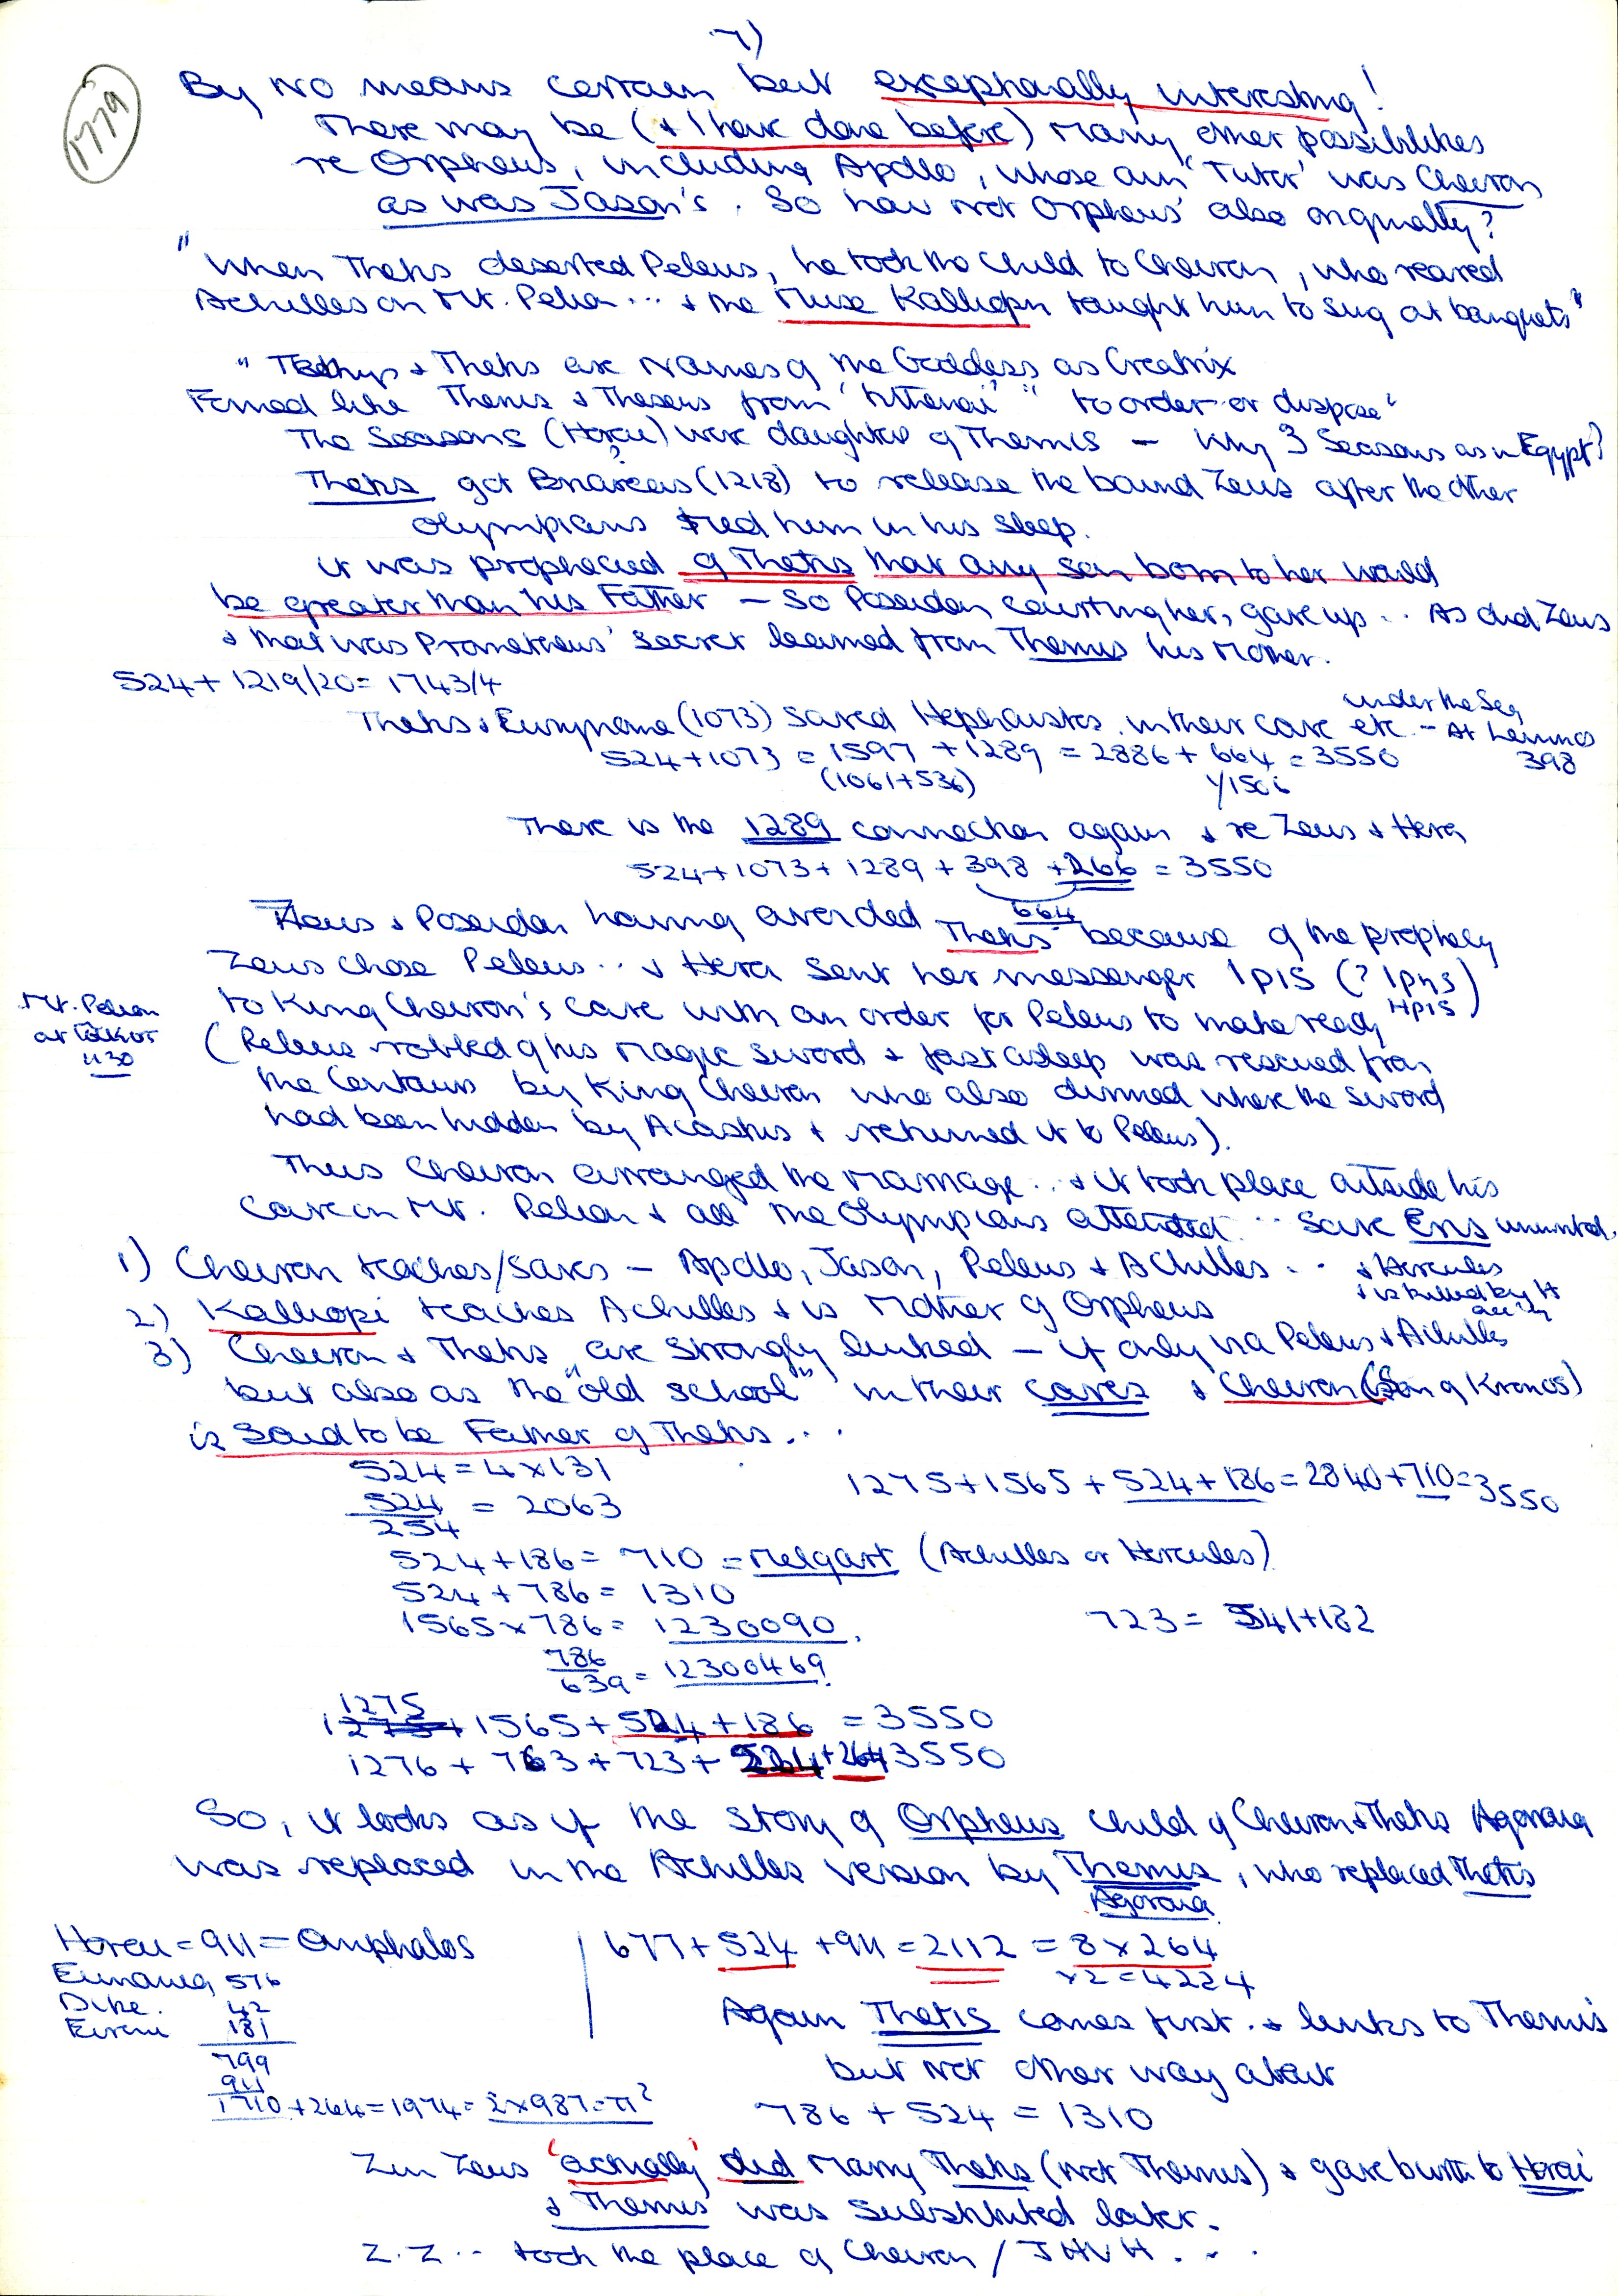 7)
1779
By no means certain but exceptionally interesting!
There may be (& I have done before) many other possibilities
re Orpheus, including Apollo, whose own 'Tutor' was Cheiron
as was Jason's. So how not Orpheus' also originally?
"When Thetis deserted Peleus, he took the child to Cheiron, who reared
Achilles on Mt. Pelion ... & the Muse Kalliopi taught him to sing at banquets"
" Tethys & Thetis are names of the Goddess as Creatrix
Formed like Themis & Theseus from 'tithenai' " to order or dispose"
The Seasons (Horae) were daughters of Themis – Why 3 Seasons as in Egypt?
?
Thetis got Briareus (1218) to release the bound Zeus after the other
Olympians tied him in his sleep.
it was prophecied of Thetis that any son born to her would
be greater than his Father – So Poseidon courting her, gave up .. As did Zeus
& that was Prometheus' secret learned from Themis his Mother.
524 + 1219/20 = 1743/4
under the Sea
Thetis & Eurynome (1073) saved Hephaistos in their cave etc. – At Lemnos
524 + 1073 = 1597 + 1289 = 2886 + 664 = 3550 398
(1061+536) 1/1506
There is the 1289 connection again & re Zeus & Hera
524 + 1073 + 1289 + 398 + 266 = 3550
664
Zeus & Poseidon having avoided Thetis because of the prophecy
Zeus chose Peleus .. & Hera sent her messenger IPIS (? IPHS)
HPIS
Mt. Pelion
at Iolkos
1130
to King Cheiron's cave with an order for Peleus to make ready
(Peleus robbed of his magic sword & fast asleep was rescued from
the Centaurs by King Cheiron who also divined where the sword
had been hidden by Acastus & returned it to Peleus).
Thus Cheiron arranged the marriage .. & it took place outside his
Cave on Mt. Pelion & all the Olympians attended .. Save Eris uninvited.
1) Cheiron teaches/saves – Apollo, Jason, Peleus & Achilles .. & Hercules
& is killed by H
2) Kalliopi teaches Achilles & is Mother of Orpheus
3) Cheiron & Thetis are strongly linked – if only via Peleus & Achilles
but also as the "old school" in their caves & Cheiron (Son of Kronos)
is said to be Father of Thetis ...
524 = 4 x 131
1275 + 1565 + 524 + 186 = 2840 + 710 = 3550
524 = 2063
254
524 + 186 = 710 = Melqart (Achilles or Hercules)
524 + 786 = 1310
1565 x 786 = 1230090.
723 = 541 + 182
786
639 = 12300469.
1275
1275 + 1565 + 524 + 186 = 3550
1276 + 763 + 723 + 524 + 264 3550
So, it looks as if the story of Orpheus child of Cheiron & Thetis Agoraia
was replaced in the Achilles version by Themis, who replaced Thetis
Agoraia
Horai = 911 = Omphalos
Eunomia 576
Dike. 42
Eireni 181
799
911
1710 + 264 = 1974 = 2 x 987 = π²
677 + 524 + 911 = 2112 = 8 x 264
x2 = 4224
Again Thetis comes first . & links to Themis
but not other way about
786 + 524 = 1310
Zin Zeus 'actually' did marry Thetis (not Themis) & gave birth to Horai
& Themis was substituted later.
Z. Z .. took the place of Cheiron / JHVH . . .